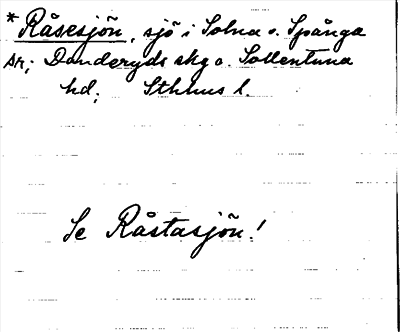 * Råsesjön, sjö i Solna o. Spånga
sn; Danderyds skg o. Sollentuna
hd; Sthlms l.
Se Råstasjön!